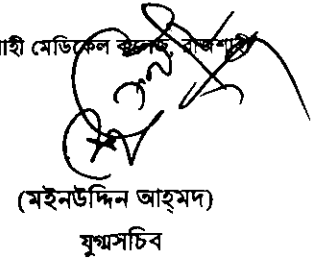 াহী মেডিকেল কলেজ, রাজশাহী
(মইনউদ্দিন আহ্‌মদ)
যুগ্মসচিব